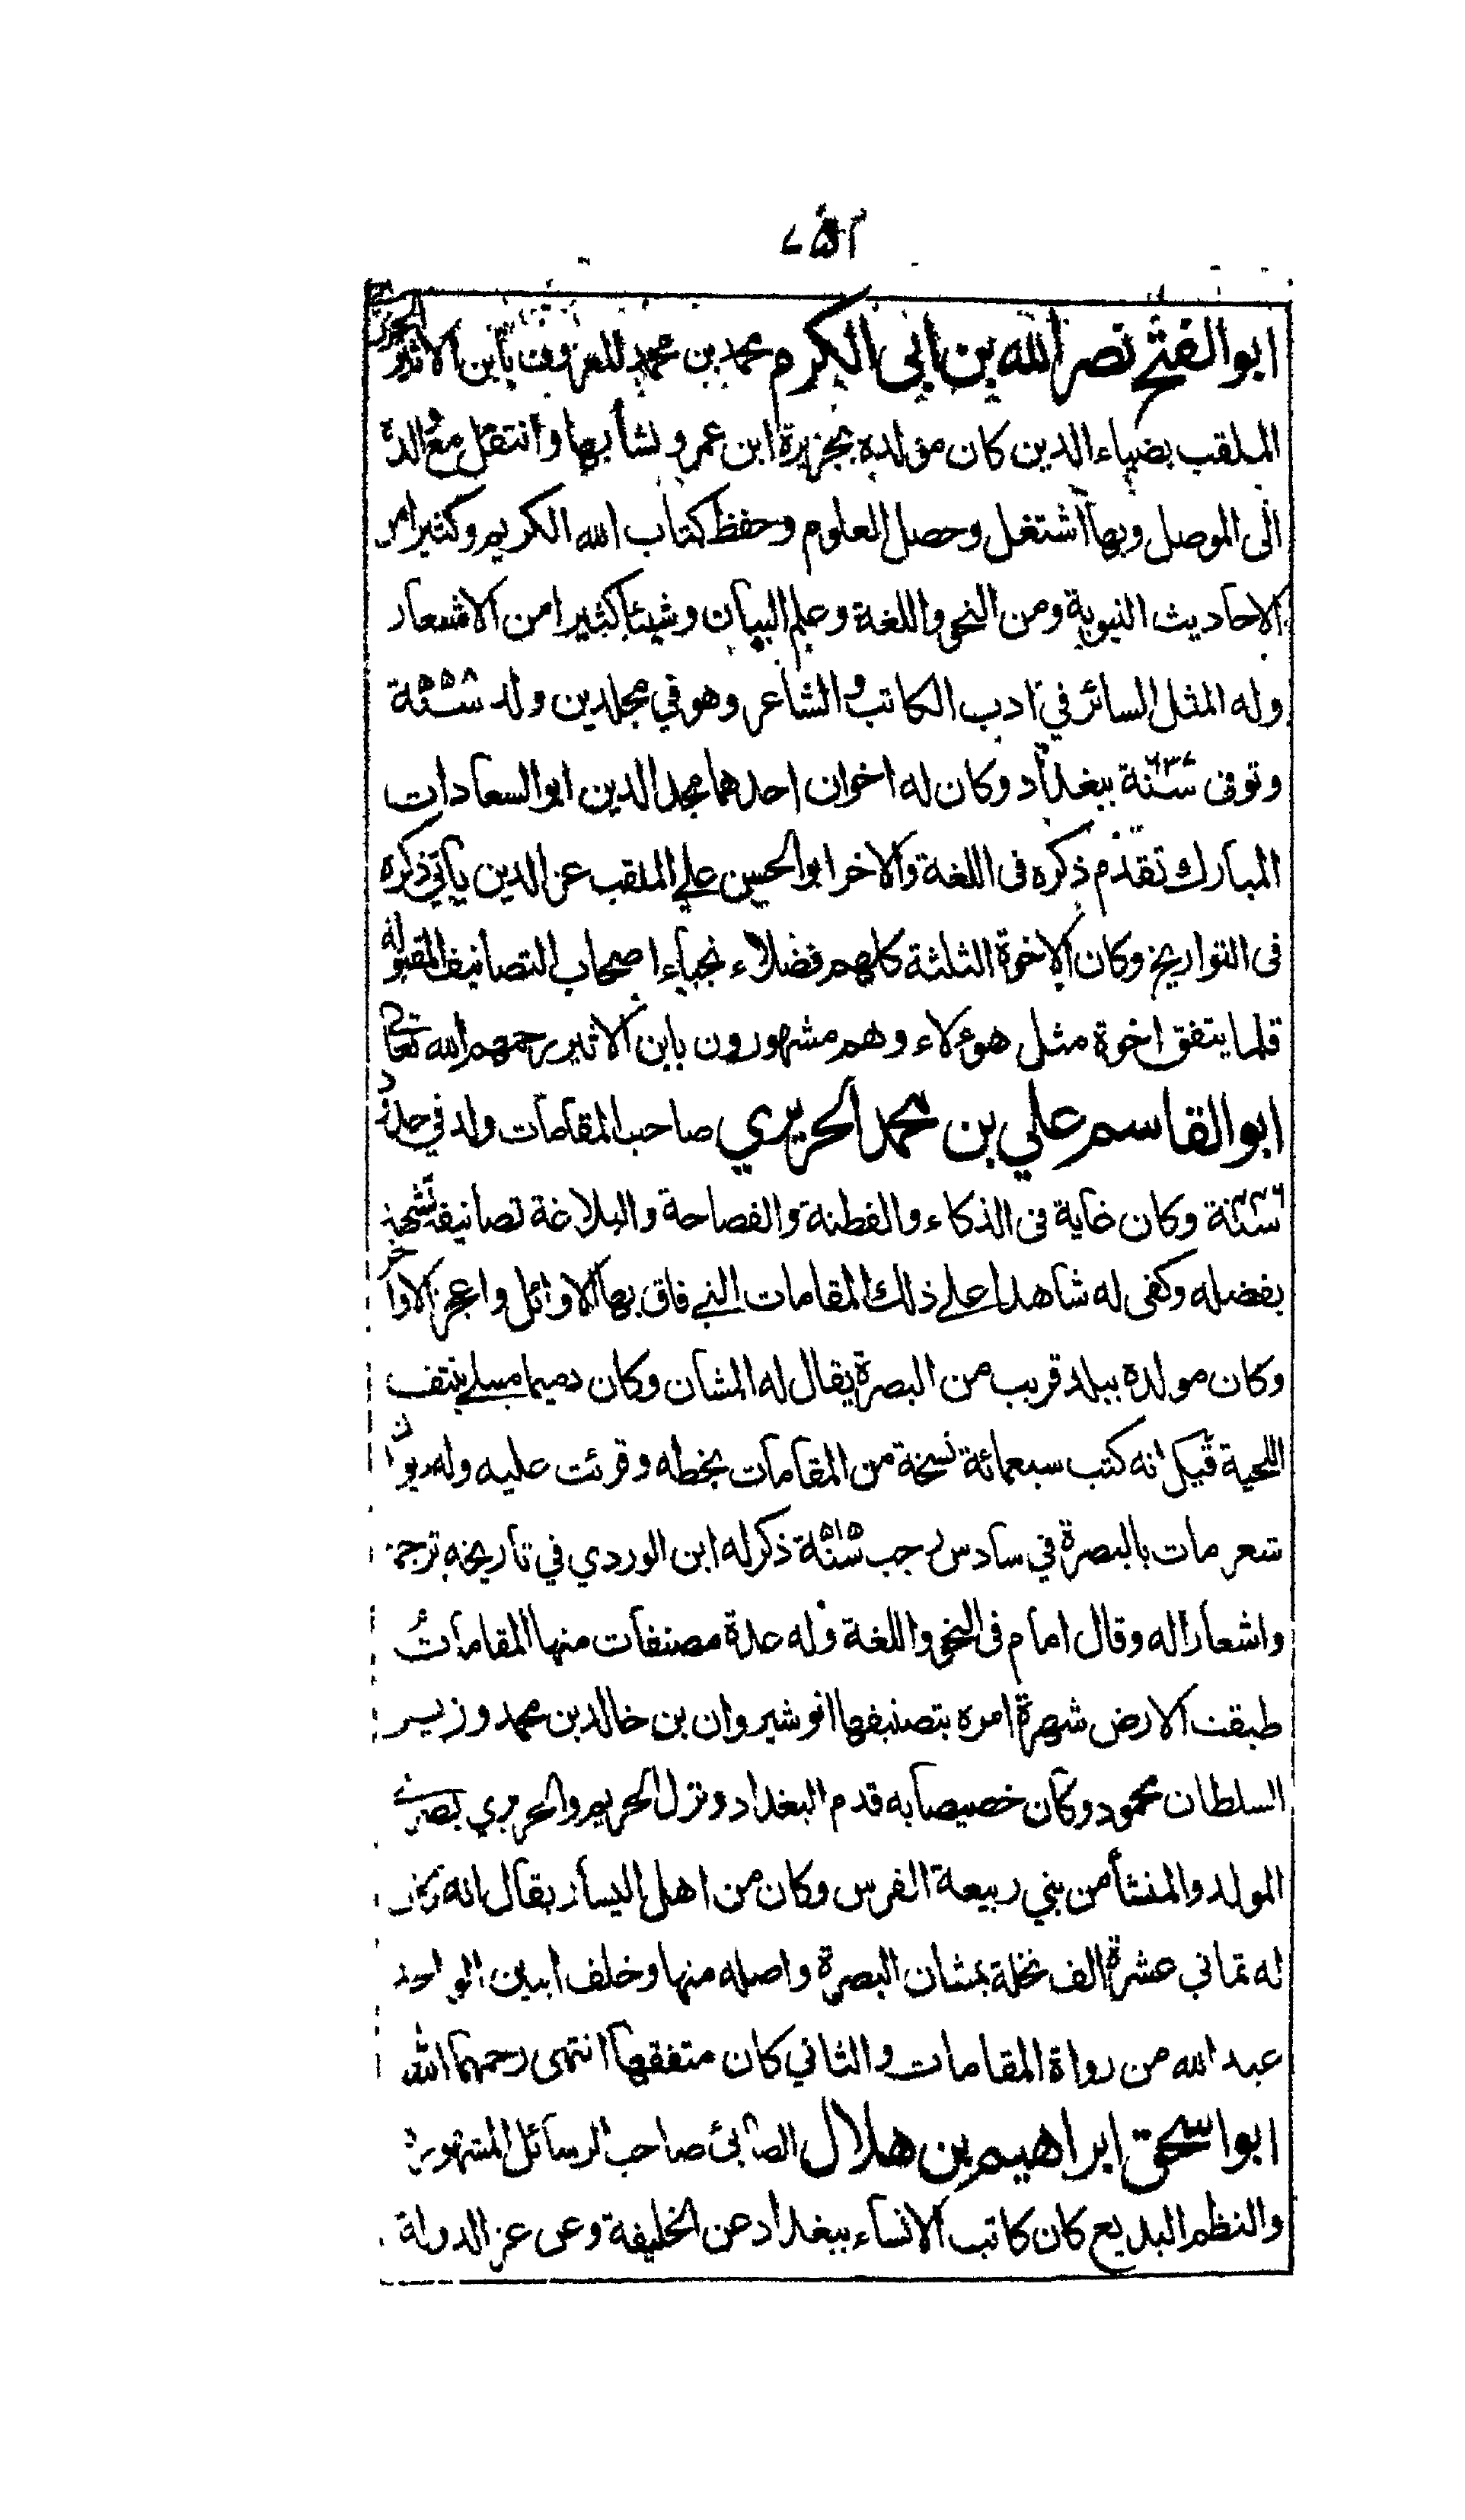 ابو الفتح نصر الله بن ابى الكرم محمد بن محمد المعروف بابن الاثير الجزري
الملقب بضياء الدين كان مولده بجزيرة ابن عمرو نشأ بها وانتقل مع والده
الى الموصل وبها اشتغل وحصل العلوم وحفظ كتاب الله الكريم وكثيرا من
الاحاديث النبوية ومن النحو واللغة وعلم البيان وشيئا كثيرا من الاشعار
وله المثل السائر في ادب الكاتب والشاعر وهو في مجلدين ولد سنة ۵۵۸
وتوفى سنة ٦٣٧ ببغداد وكان له اخوان احدهما مجد الدين ابو السعادات
المبارك تقدم ذكره فى اللغة والاخر ابو الحسين علي الملقب عز الدين يأتي ذكره
فى التواريخ وكان الاخوة الثلثة كلهم فضلاء نجباء اصحاب التصانيف المقبولة
قلما يتفق اخوة مثل هؤلاء وهم مشهورون بابن الاثير رحمهم الله تعالى
ابو القاسم علي بن محمد الحريري صاحب المقامات ولد في حدود
سنة ٤٤٦ وكان غاية فى الذكاء والفطنة والفصاحة والبلاغة تصانيفه تشهد
بفضله وكفى له شاهدا على ذلك المقامات التي فاق بها الاوائل واعجز الاواخر
وكان مولده ببلد قريب من البصرة يقال له المشان وكان دميما مبتلى بنتف
اللحية قيل انه كتب سبعمائة نسخة من المقامات بخطه وقرئت عليه وله ديوان
شعر مات بالبصرة في سادس رجب سنة ۵۱۵ ذكر له ابن الوردي في تاريخه ترجمة
واشعارا له وقال امام فى النحو واللغة وله عدة مصنفات منها المقامات
طبقت الارض شهرة امره بتصنيفها انوشيروان بن خالد بن محمد وزير
السلطان محمود وكان خصيصا به قدم البغداد ونزل الحريم والحريري بصري
المولد والمنشأ من بني ربيعة الفرس وكان من اهل اليسار يقال انه كان
له ثماني عشرة الف نخلة بمشان البصرة واصله منها وخلف ابنين الواحد
عبد الله من رواة المقامات والثاني كان متفقها انتهى رحمهما الله
ابو اسحق ابراهيم بن هلال الصابئ صاحب الرسائل المشهورة
والنظم البديع كان كاتب الانشاء ببغداد عن الخليفة وعن عز الدولة